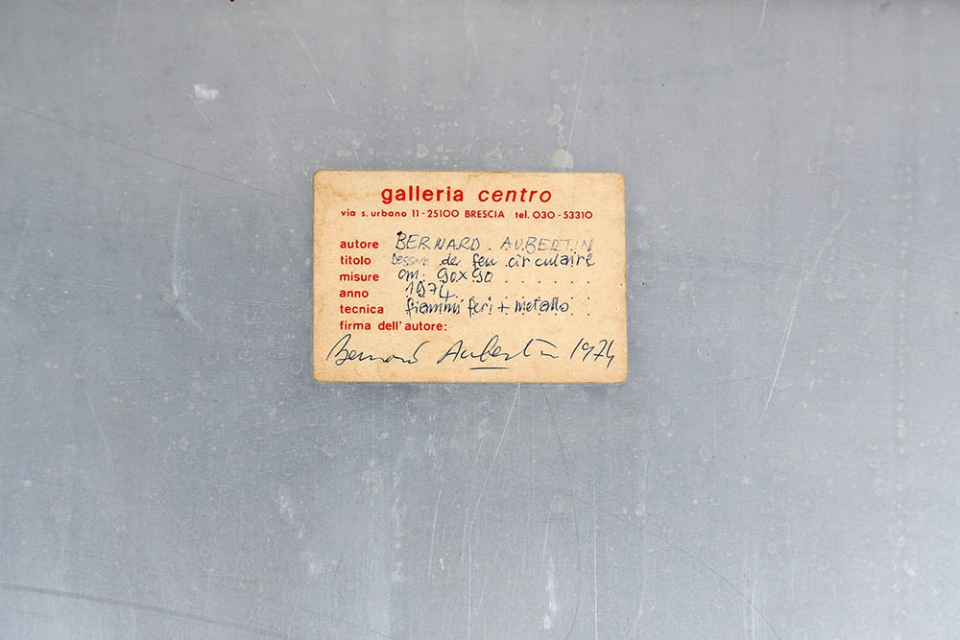 galleria centro
via s. urbano 11 - 25100 BRESCIA tel. 030 - 53310
autore BERNARD . AUBERTIN
titolo Dessin de feu circulaire
misure cm. 90x90
anno 1974
tecnica fiammiferi + metallo
firma dell'autore:
Bernard Aubertin 1974